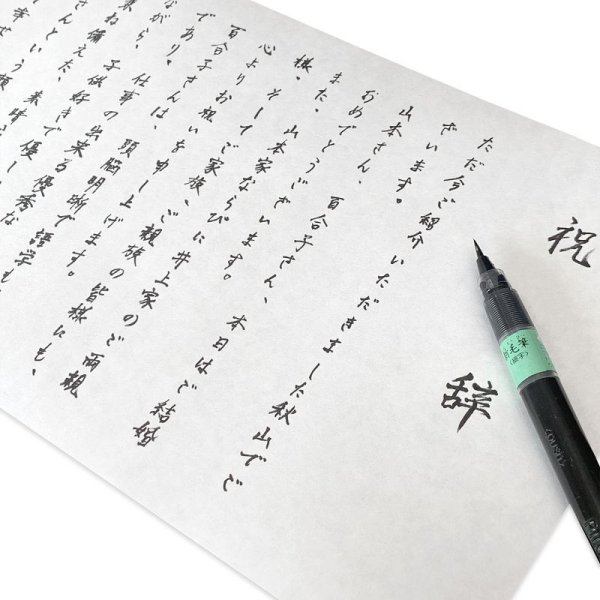 祝辞
ただ今ご紹介いただきました秋山でご
ざいます。
山本さん、百合子さん、本日はご結婚
おめでとうございます。
また、山本家ならびに井上家のご両親
様、そしてご家族、ご親族の皆様にも、
心よりお祝いを申し上げます。
百合子さんは、頭脳明晰で語学も
であり、仕事の出来る優秀な
ながら、子供好きで優し
ね備えた、
さんという
毛筆
(細字)